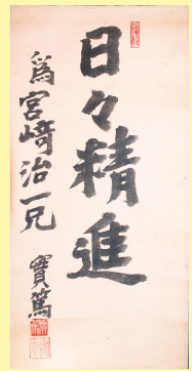 日々精進
為宮﨑治一兄
寳篤